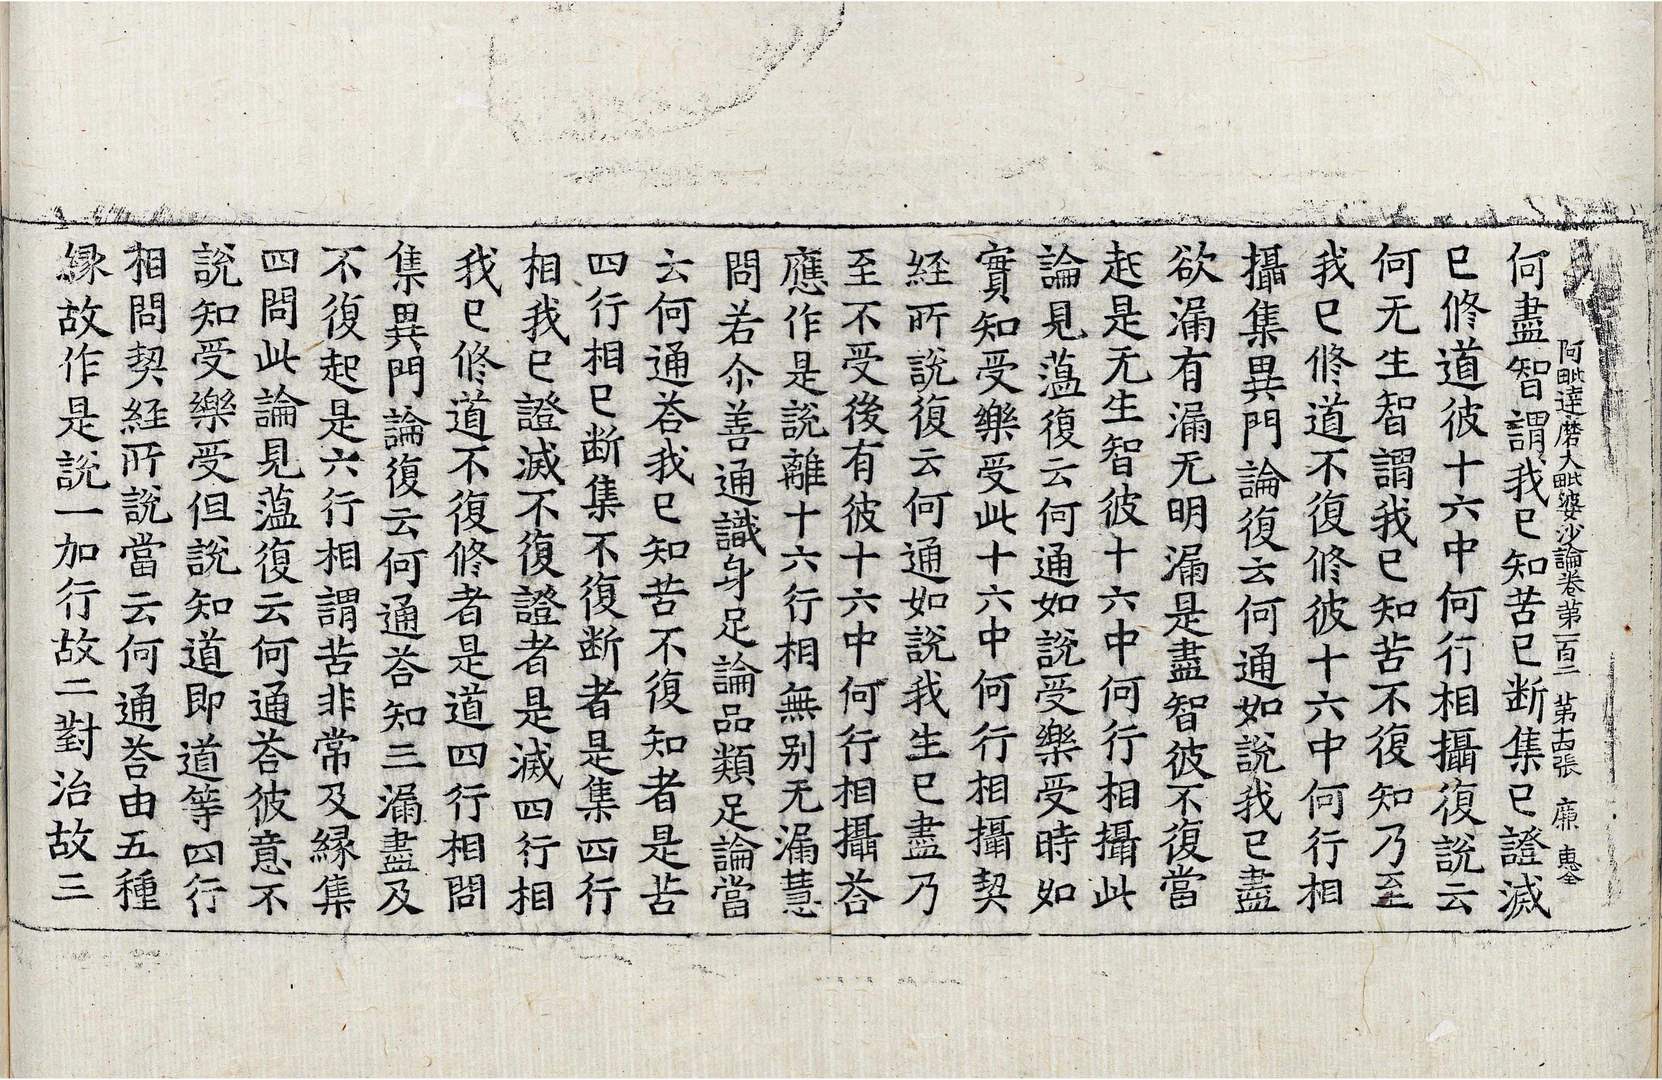 阿毗達磨大毗婆沙論卷第一百二　第十四張　廉　惠全
何盡智謂我已知苦已断集已證滅
已修道彼十六中何行相攝復說云
何无生智謂我已知苦不復知乃至
我已修道不復修彼十六中何行相
攝集異門論復云何通如說我已盡
欲漏有漏无明漏是盡智彼不復當
起是无生智彼十六中何行相攝此
論見蕰復云何通如說受樂受時如
實知受樂受此十六中何行相攝契
経所說復云何通如說我生已盡乃
至不受後有彼十六中何行相攝荅
應作是說離十六行相無別无漏慧
問若尒善通識身足論品類足論當
云何通荅我已知苦不復知者是苦
四行相已断集不復断者是集四行
相我已證滅不復證者是滅四行相
我已修道不復修者是道四行相問
集異門論復云何通荅知三漏盡及
不復起是六行相謂苦非常及縁集
四問此論見蕰復云何通荅彼意不
說知受樂受但說知道即道等四行
相問契経所說當云何通荅由五種
縁故作是說一加行故二對治故三